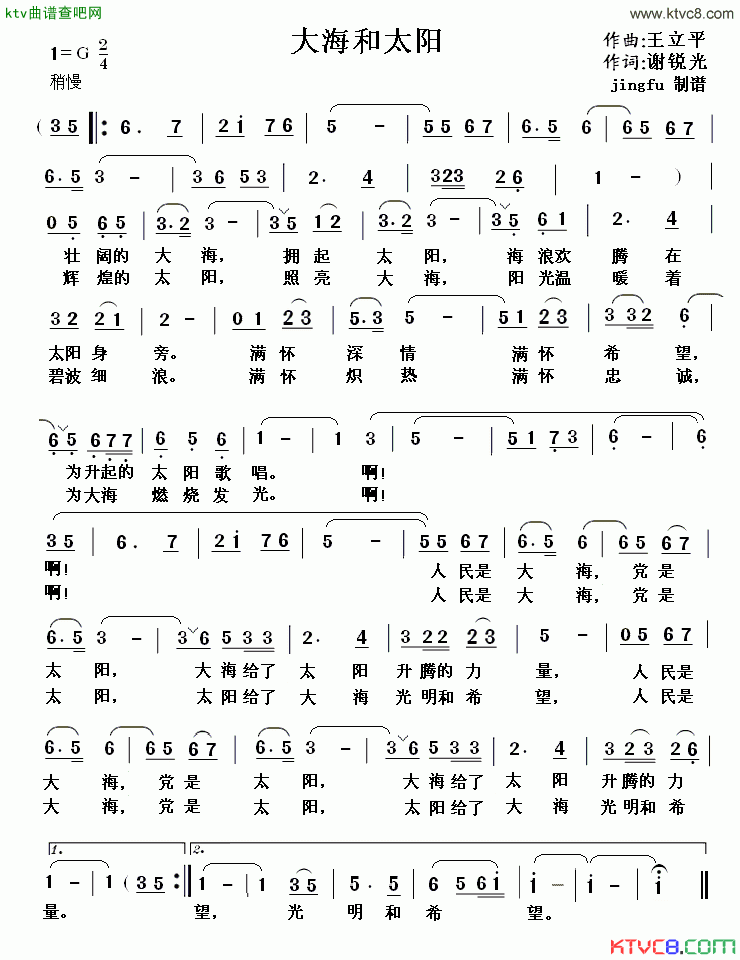 ktv曲谱查吧网
www.ktvc8.com
大海和太阳
1=G 2/4
稍慢
作曲:王立平
作词:谢锐光
jingfu 制谱
( 3 5 ‖: 6. 7 | 2 i 7 6 | 5 - | 5 5 6 7 | 6. 5 6 | 6 5 6 7 |
6. 5 3 - | 3 6 5 3 | 2. 4 | 3 2 3 2 6 | 1 - ) |
0 5 6 5 | 3. 2 3 - | 3 5 1 2 | 3. 2 3 - | 3 5 6 1 | 2. 4 |
壮阔的 大海, 拥起 太阳, 海浪欢 腾在
辉煌的 太阳, 照亮 大海, 阳光温 暖着
3 2 2 1 | 2 - | 0 1 2 3 | 5. 3 5 - | 5 1 2 3 | 3 3 2 6 |
太阳身 旁。 满怀 深情 满怀 希望,
碧波细 浪。 满怀 炽热 满怀 忠诚,
6 5 6 7 7 | 6 5 6 | 1 - | 1 3 | 5 - | 5 1 7 3 | 6 - | 6
为升起的 太阳歌 唱。 啊!
为大海 燃烧发 光。 啊!
3 5 | 6. 7 | 2 i 7 6 | 5 - | 5 5 6 7 | 6. 5 6 | 6 5 6 7 |
啊! 人民是 大海, 党是
啊! 人民是 大海, 党是
6. 5 3 - | 3 6 5 3 3 | 2. 4 | 3 2 2 2 3 | 5 - | 0 5 6 7 |
太阳, 大海给了 太阳 升腾的力 量, 人民是
太阳, 太阳给了 大海 光明和希 望, 人民是
6. 5 6 | 6 5 6 7 | 6. 5 3 - | 3 6 5 3 3 | 2. 4 | 3 2 3 2 6 |
大海, 党是 太阳, 大海给了 太阳 升腾的力
大海, 党是 太阳, 太阳给了 大海 光明和希
1. 2.
1 - | 1 ( 3 5 :‖ 1 - | 1 3 5 | 5 4 | 6 5 6 i | i - | i - ‖
量。 望, 光明和希 望。
KTVC8.COM